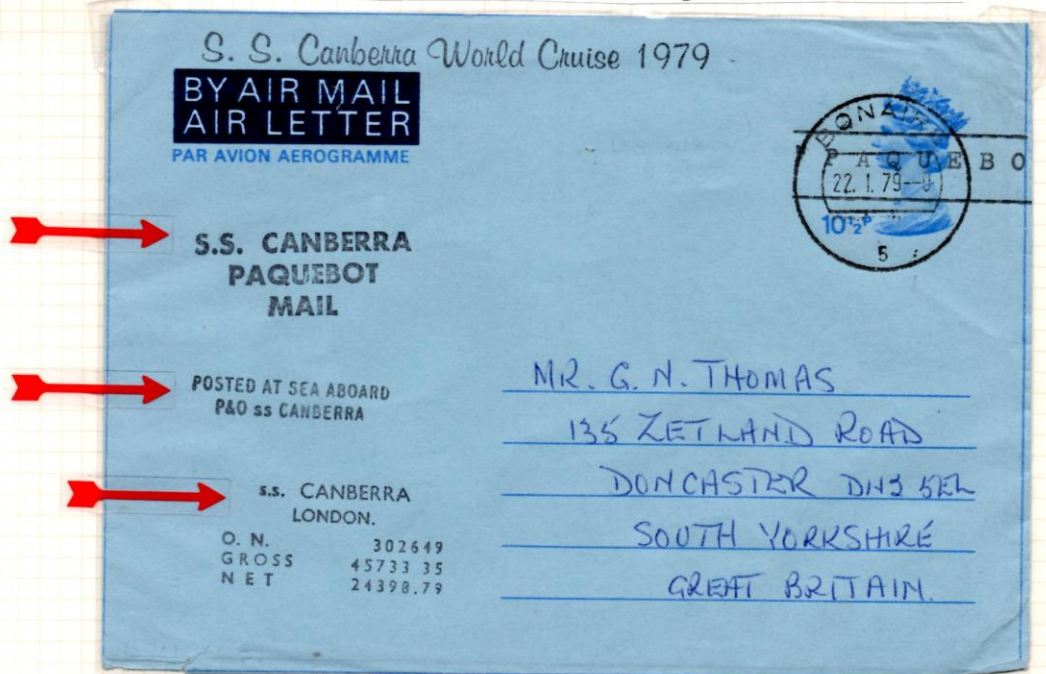 S. S. Canberra World Cruise 1979
BY AIR MAIL
AIR LETTER
PAR AVION AEROGRAMME
BONAIRE
PAQUEBO
22. 1. 79
10½P
5
S.S. CANBERRA
PAQUEBOT
MAIL
POSTED AT SEA ABOARD
P&O ss CANBERRA
s.s. CANBERRA
LONDON.
O. N. 302649
GROSS 45733 35
NET 24398.79
MR. G. N. THOMAS
135 ZETLAND ROAD
DONCASTER DN2 5EL
SOUTH YORKSHIRE
GREAT BRITAIN.